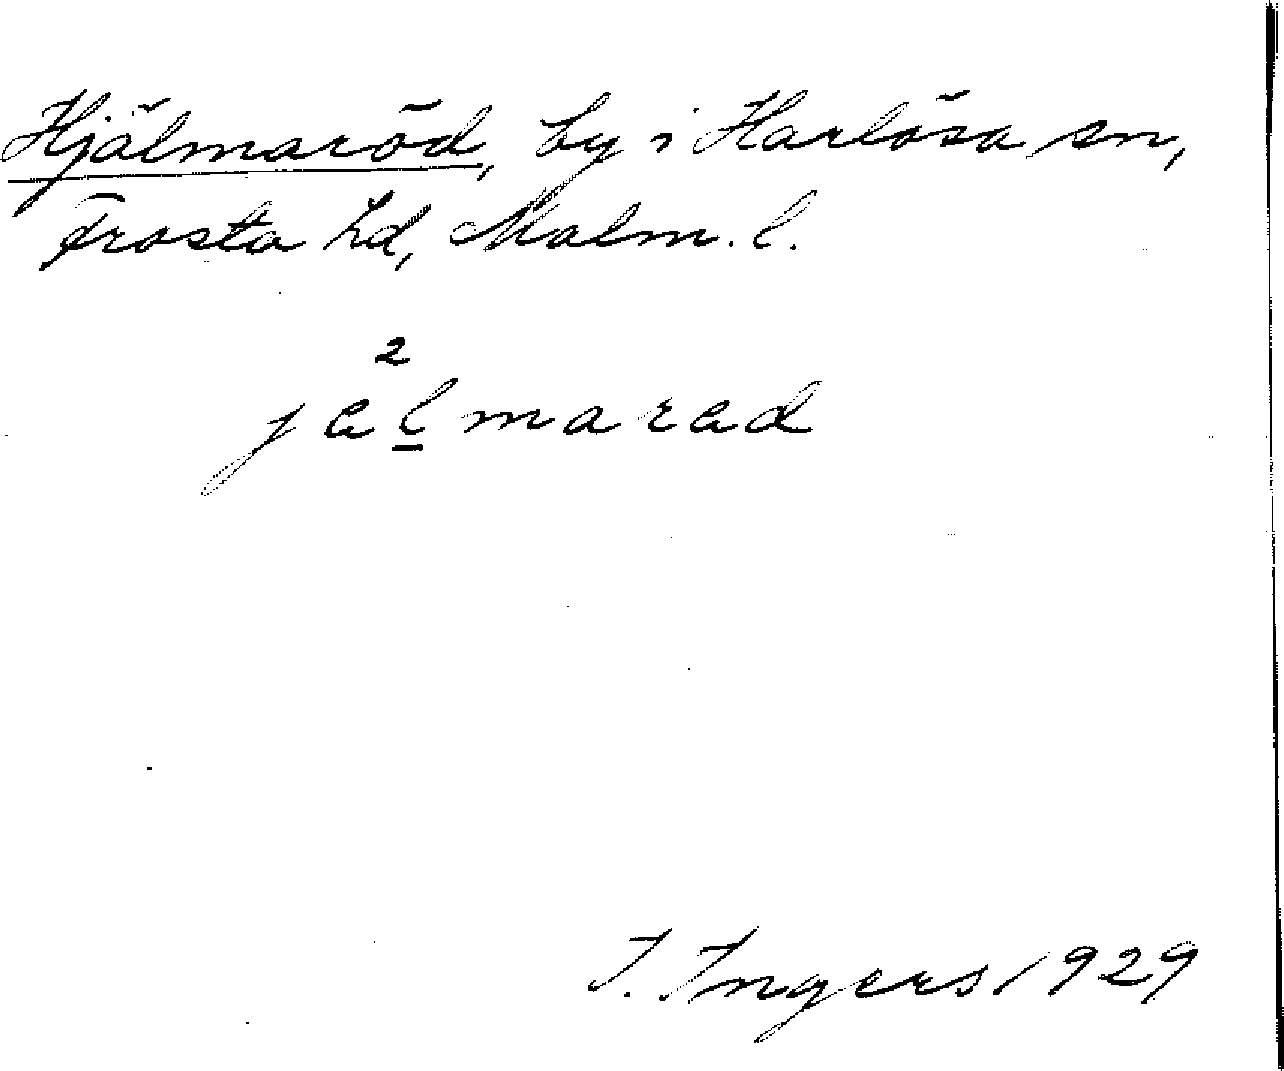 Hjälmaröd, by i Harlösa sn,
Frosta hd, Malm. l.
2
jęl̲marəd
I. Ingers 1929